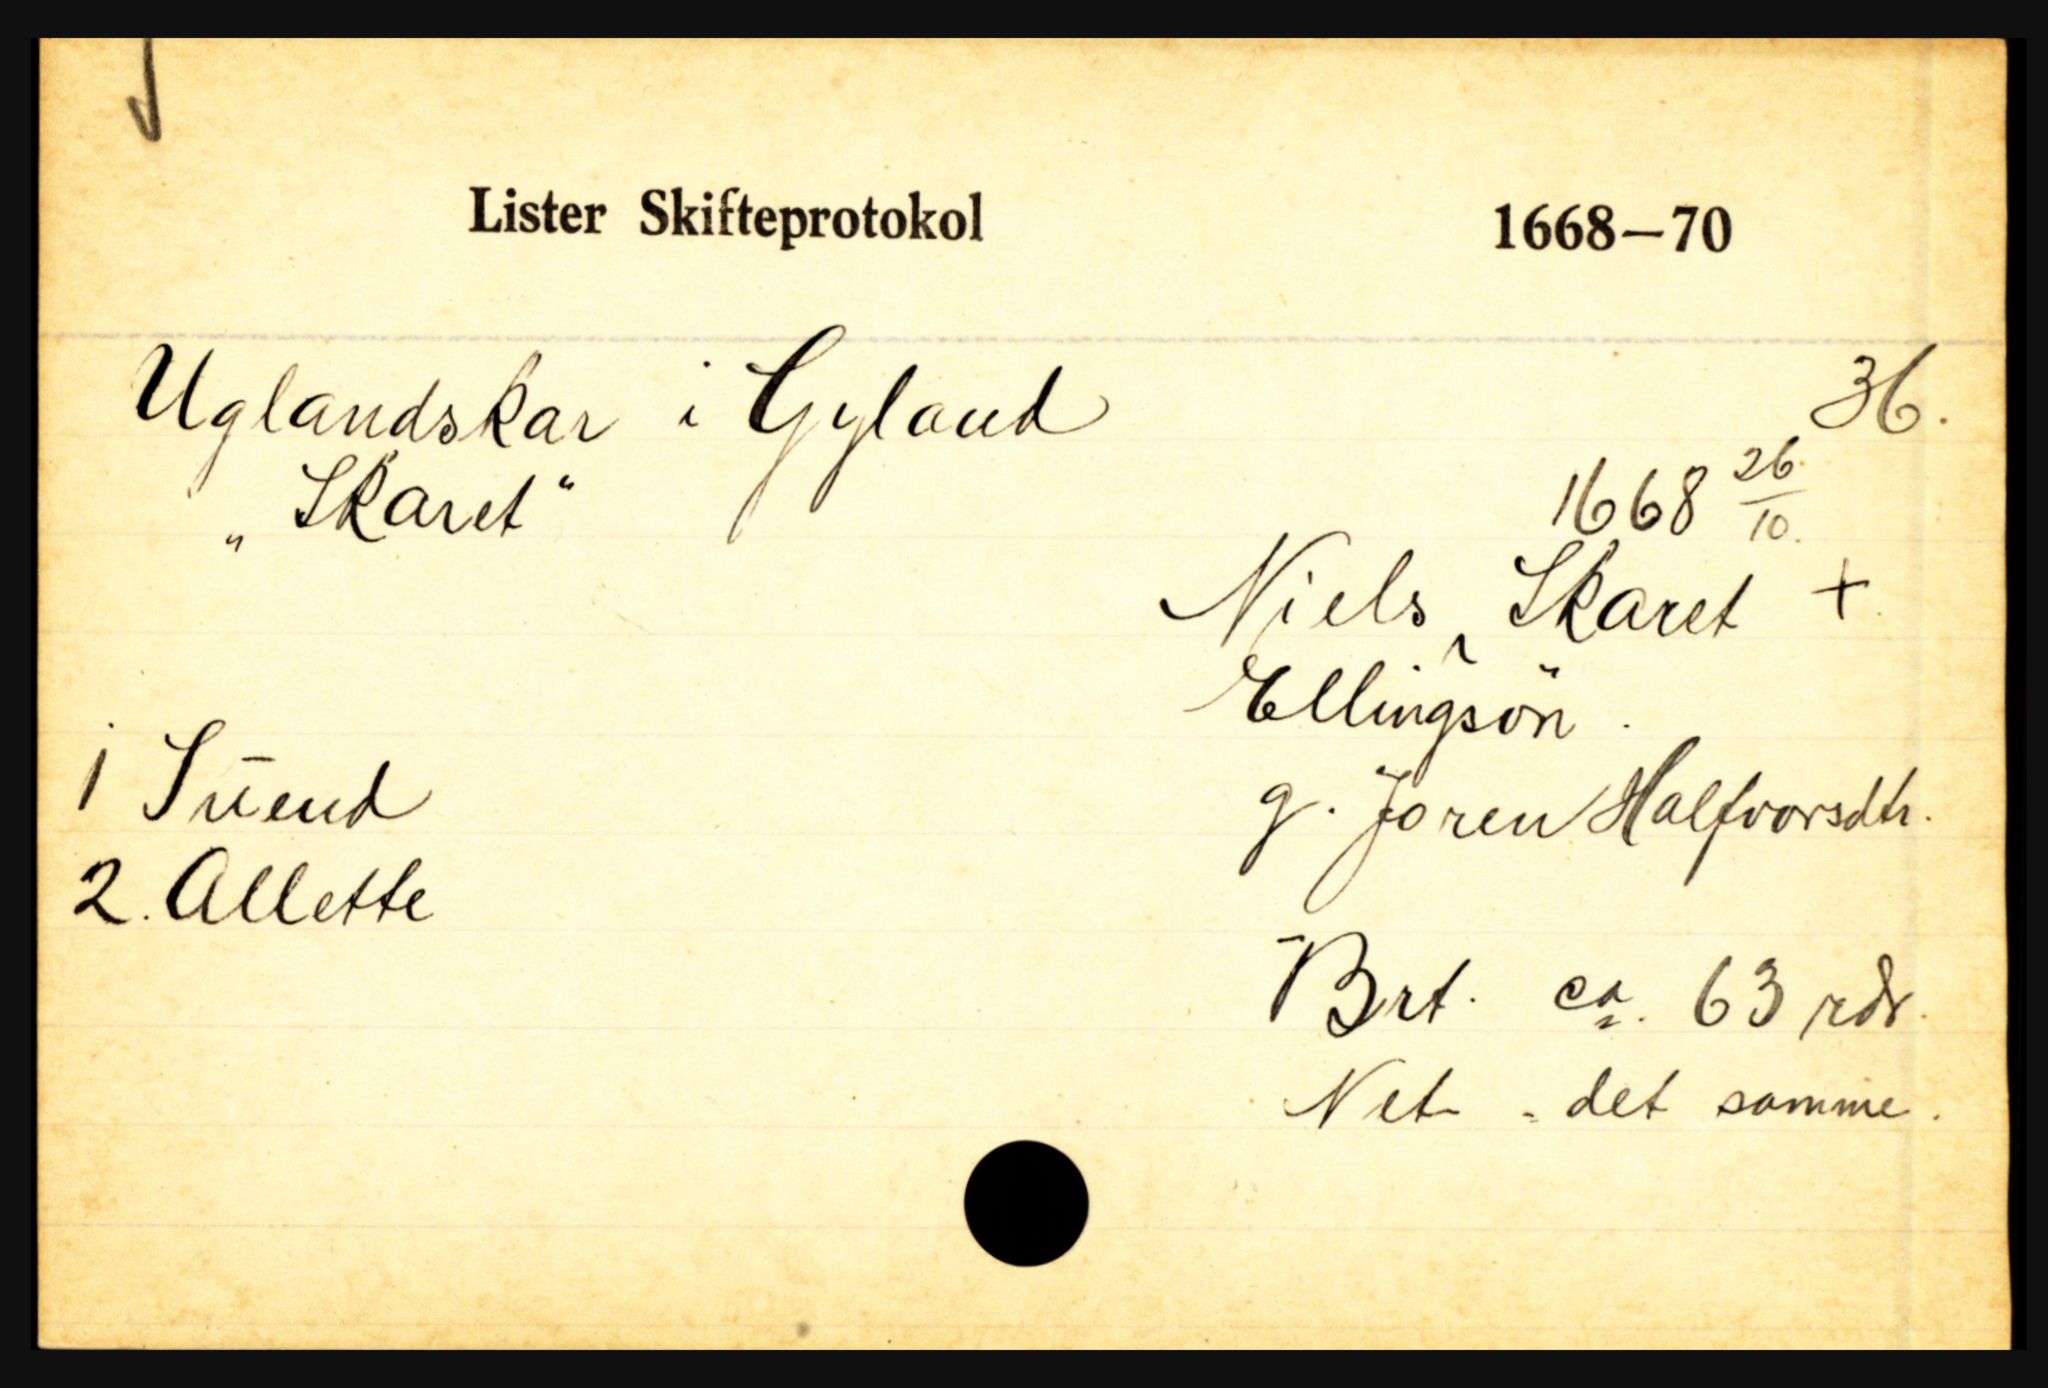 Lister Skifteprotokol 1668—70
Uglandskar i Gyland 36.
„Skaret“
1668 26/10.
Niels Skaret +
Ellingsön.
1 Suend
g. Joren Halfvorsdtr.
2. Allette
Brt. ca. 63 rdr.
Net - det samme.